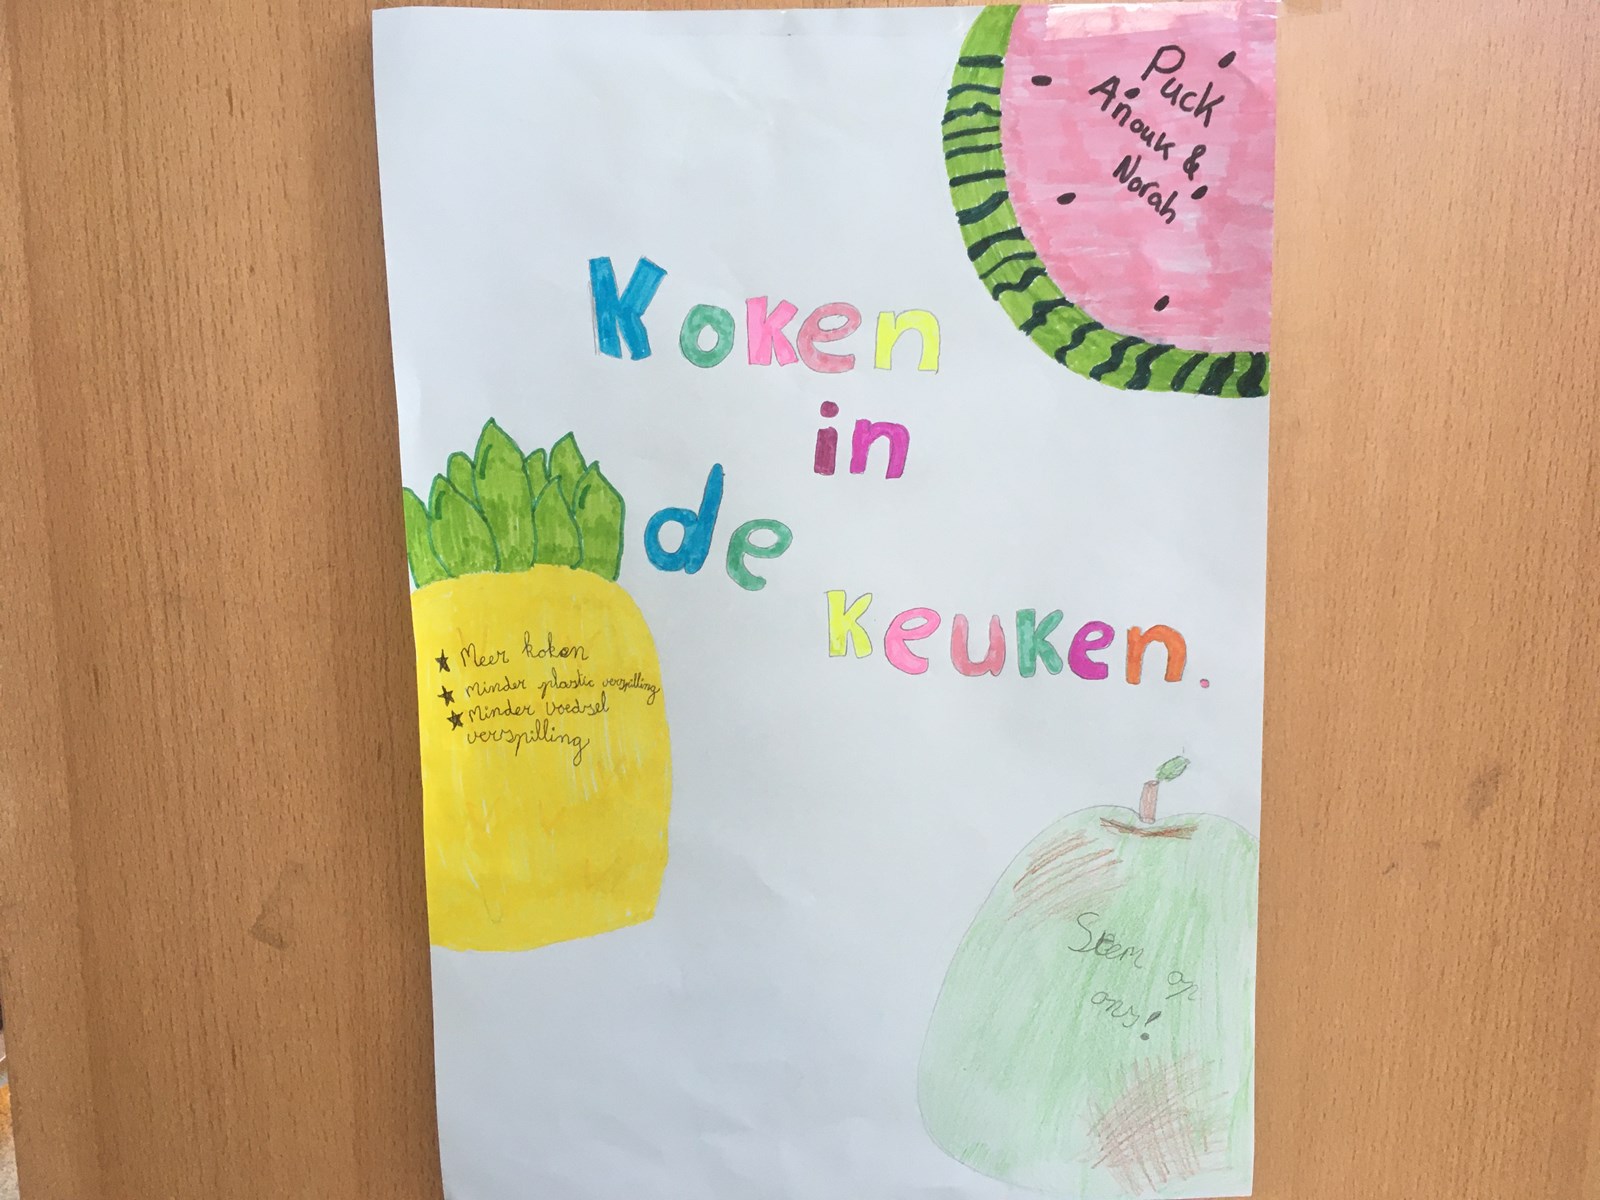 Puck
Anouk &
Norah
Koken
in
de
keuken.
★ Meer koken
★ minder plastic verspilling
★ minder voedsel
verspilling
Stem op
ons!